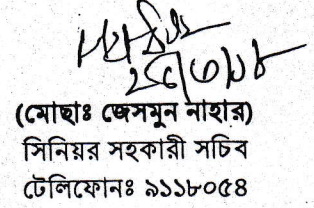 (মোছাঃ জেসমুন নাহার)
সিনিয়র সহকারী সচিব
টেলিফোনঃ ৯১১৮০৫৪